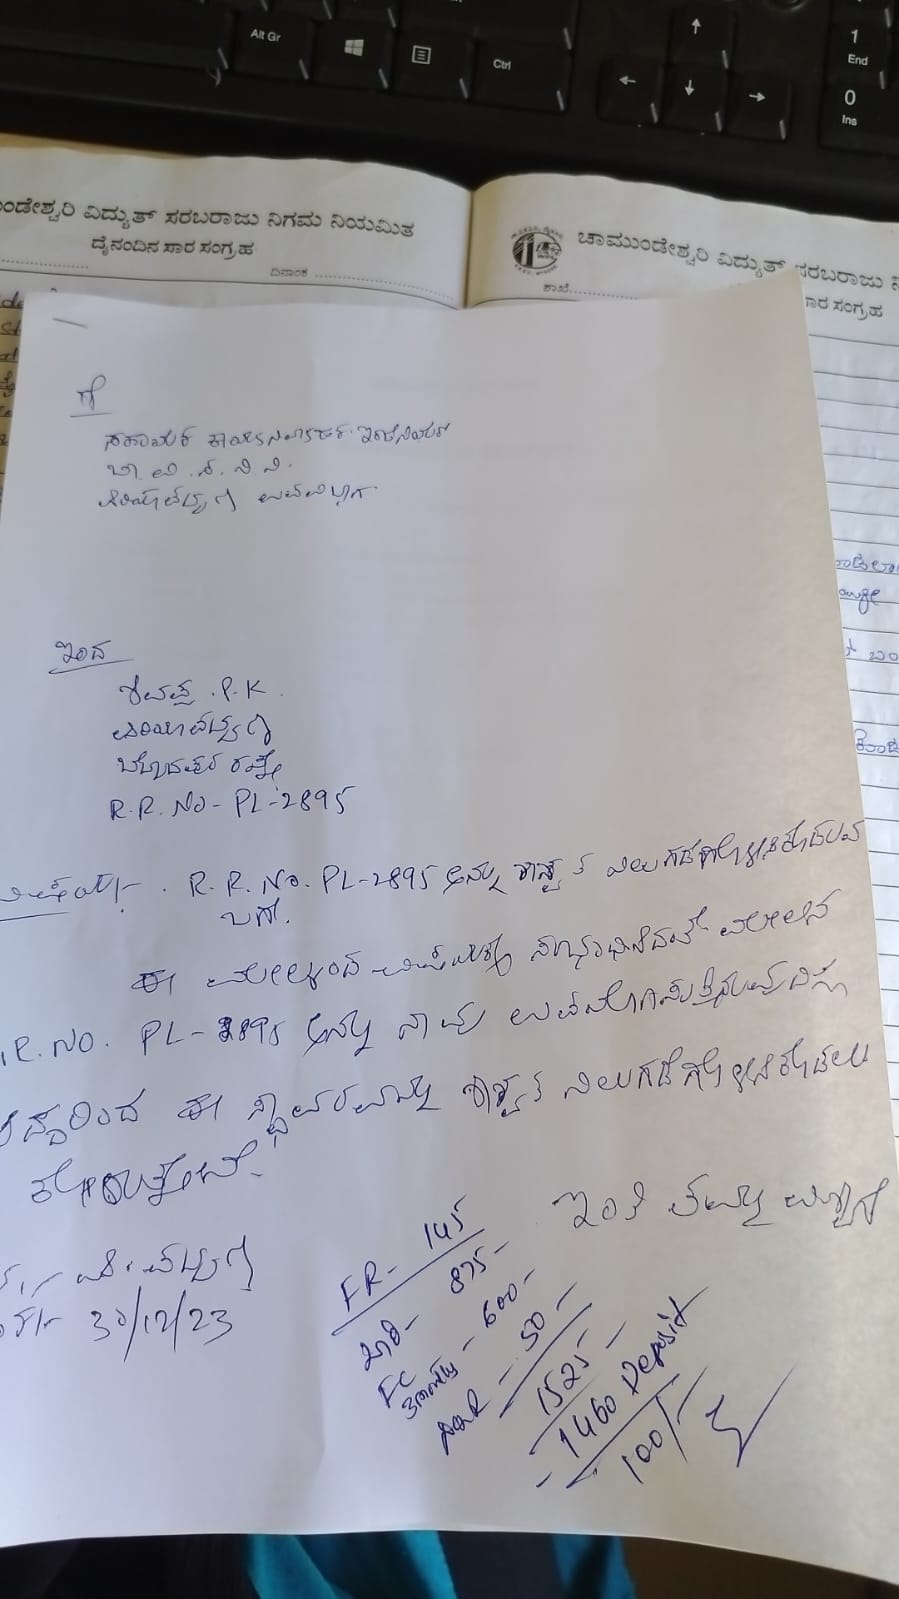 Alt Gr
Ctrl
1
End
0
Ins
ಂಡೇಶ್ವರಿ ವಿದ್ಯುತ್ ಸರಬರಾಜು ನಿಗಮ ನಿಯಮಿತ
ದೈನಂದಿನ ಸಾರ ಸಂಗ್ರಹ
ದಿನಾಂಕ
ಚಾಮುಂಡೇಶ್ವರಿ ವಿದ್ಯುತ್ ಸರಬರಾಜು ನಿ
ಶಾಖೆ
ಸಾರ ಸಂಗ್ರಹ
ಗೆ
ಸಹಾಯಕ ಕಾರ್ಯನಿರ್ವಾಹಕ ಇಂಜಿನಿಯರ್
ಚಾ.ವಿ.ಸ.ನಿ.ನಿ.
ಪಿರಿಯಾಪಟ್ಟಣ ಉಪವಿಭಾಗ
ಇಂದ
P.K.
ಪಿರಿಯಾಪಟ್ಟಣ
ರಸ್ತೆ
R.R.No-PL-2895
ವಿಷಯ:- R.R.No.PL-2895 ಅನ್ನು ಶಾಶ್ವತ ನಿಲುಗಡೆಗೊಳ್ಳಿಸಿಕೊಡುವ
ಬಗ್ಗೆ.
ಈ ಮೇಲ್ಕಂಡ ವಿಷಯಕ್ಕೆ ಸಂಭಂಧಿಸಿದಂತೆ ಮೇಲಿನ
.R.NO. PL-2895 ಅನ್ನು ನಾವು ಉಪಯೋಗಿಸುತ್ತಿರುವುದಿಲ್ಲ
ಆದ್ದರಿಂದ ಈ ಸ್ಥಾವರವನ್ನು ಶಾಶ್ವತ ನಿಲುಗಡೆಗೊಳ್ಳಿಸಿಕೊಡಲು
ಕೋರುತ್ತೇನೆ.
ಇಂತಿ ತಮ್ಮ ವಿಶ್ವಾಸಿ
ಪಿ.ಪಟ್ಟಣ
30/12/23
FR- 145
875-
FC
3months - 600-
- 50-
1525-
- 1460 Deposit
100/-